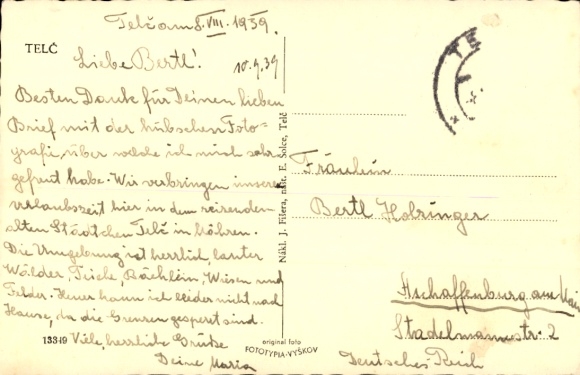 Telč am 8. VIII. 1939.
TELČ
Liebe Bertl!
10.9.39
Besten Dank für Deinen lieben
Brief mit der hübschen Foto-
grafi, über welche ich mich sehr
gefreut habe. Wir verbringen unsere
Urlaubszeit hier in dem reizenden
alten Städtchen Telč in Mähren.
Die Umgebung ist herrlich, lauter
Wälder, Teiche, Bächlein, Wiesen und
Felder. Heuer kann ich leider nicht nach
Hause, da die Grenzen gesperrt sind.
Viele, herrliche Grüße
Deine Maria
13349
Nákl. J. Fišera, nást. E. Šolce, Telč
original foto
FOTOTYPIA-VYŠKOV
TE
Fräulein
Bertl Holzinger
Aschaffenburg am Main
Stadelmannstr. 2
Deutsches Reich